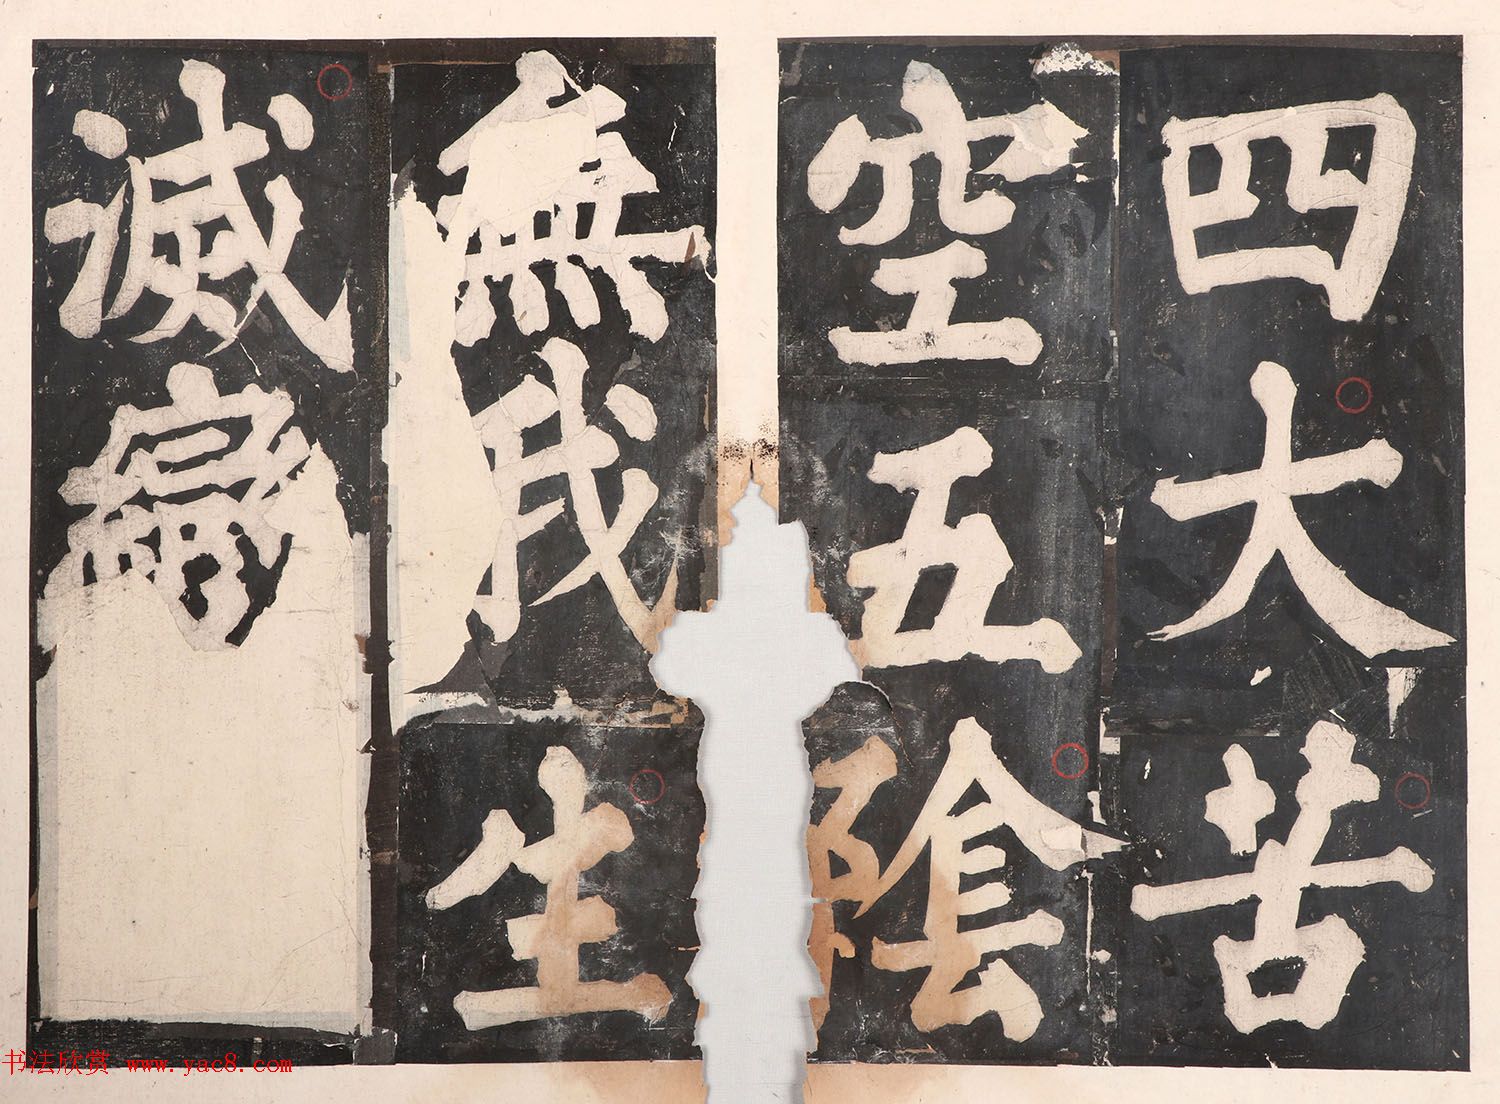 四大苦
空五陰
無我生
滅變
书法欣赏 www.yac8.com